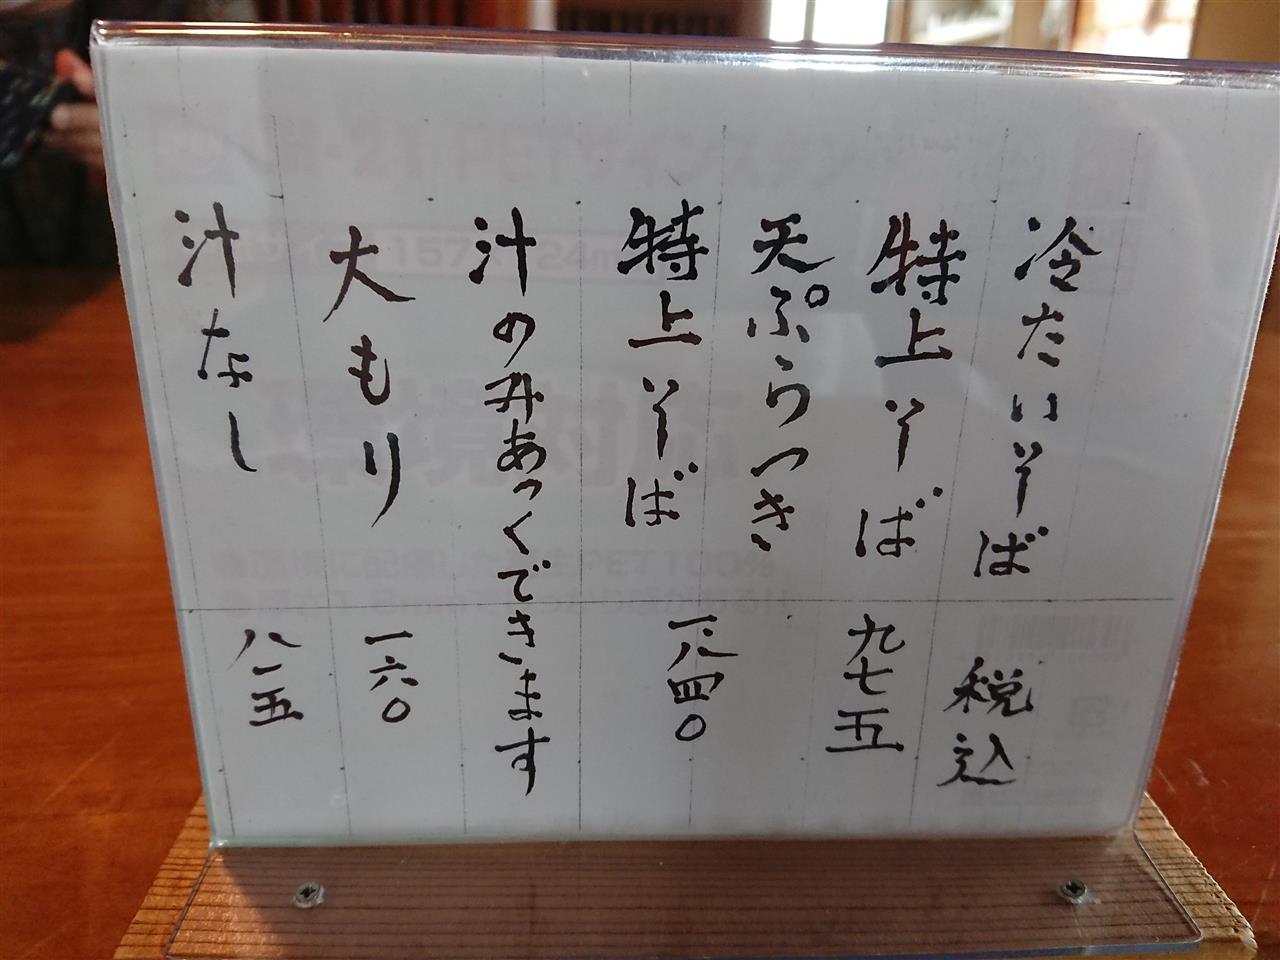 冷たいそば 税込
特上そば 九七五
天ぷらつき
特上そば 一八四〇
汁のみあつくできます
大もり 一六〇
汁なし 八一五